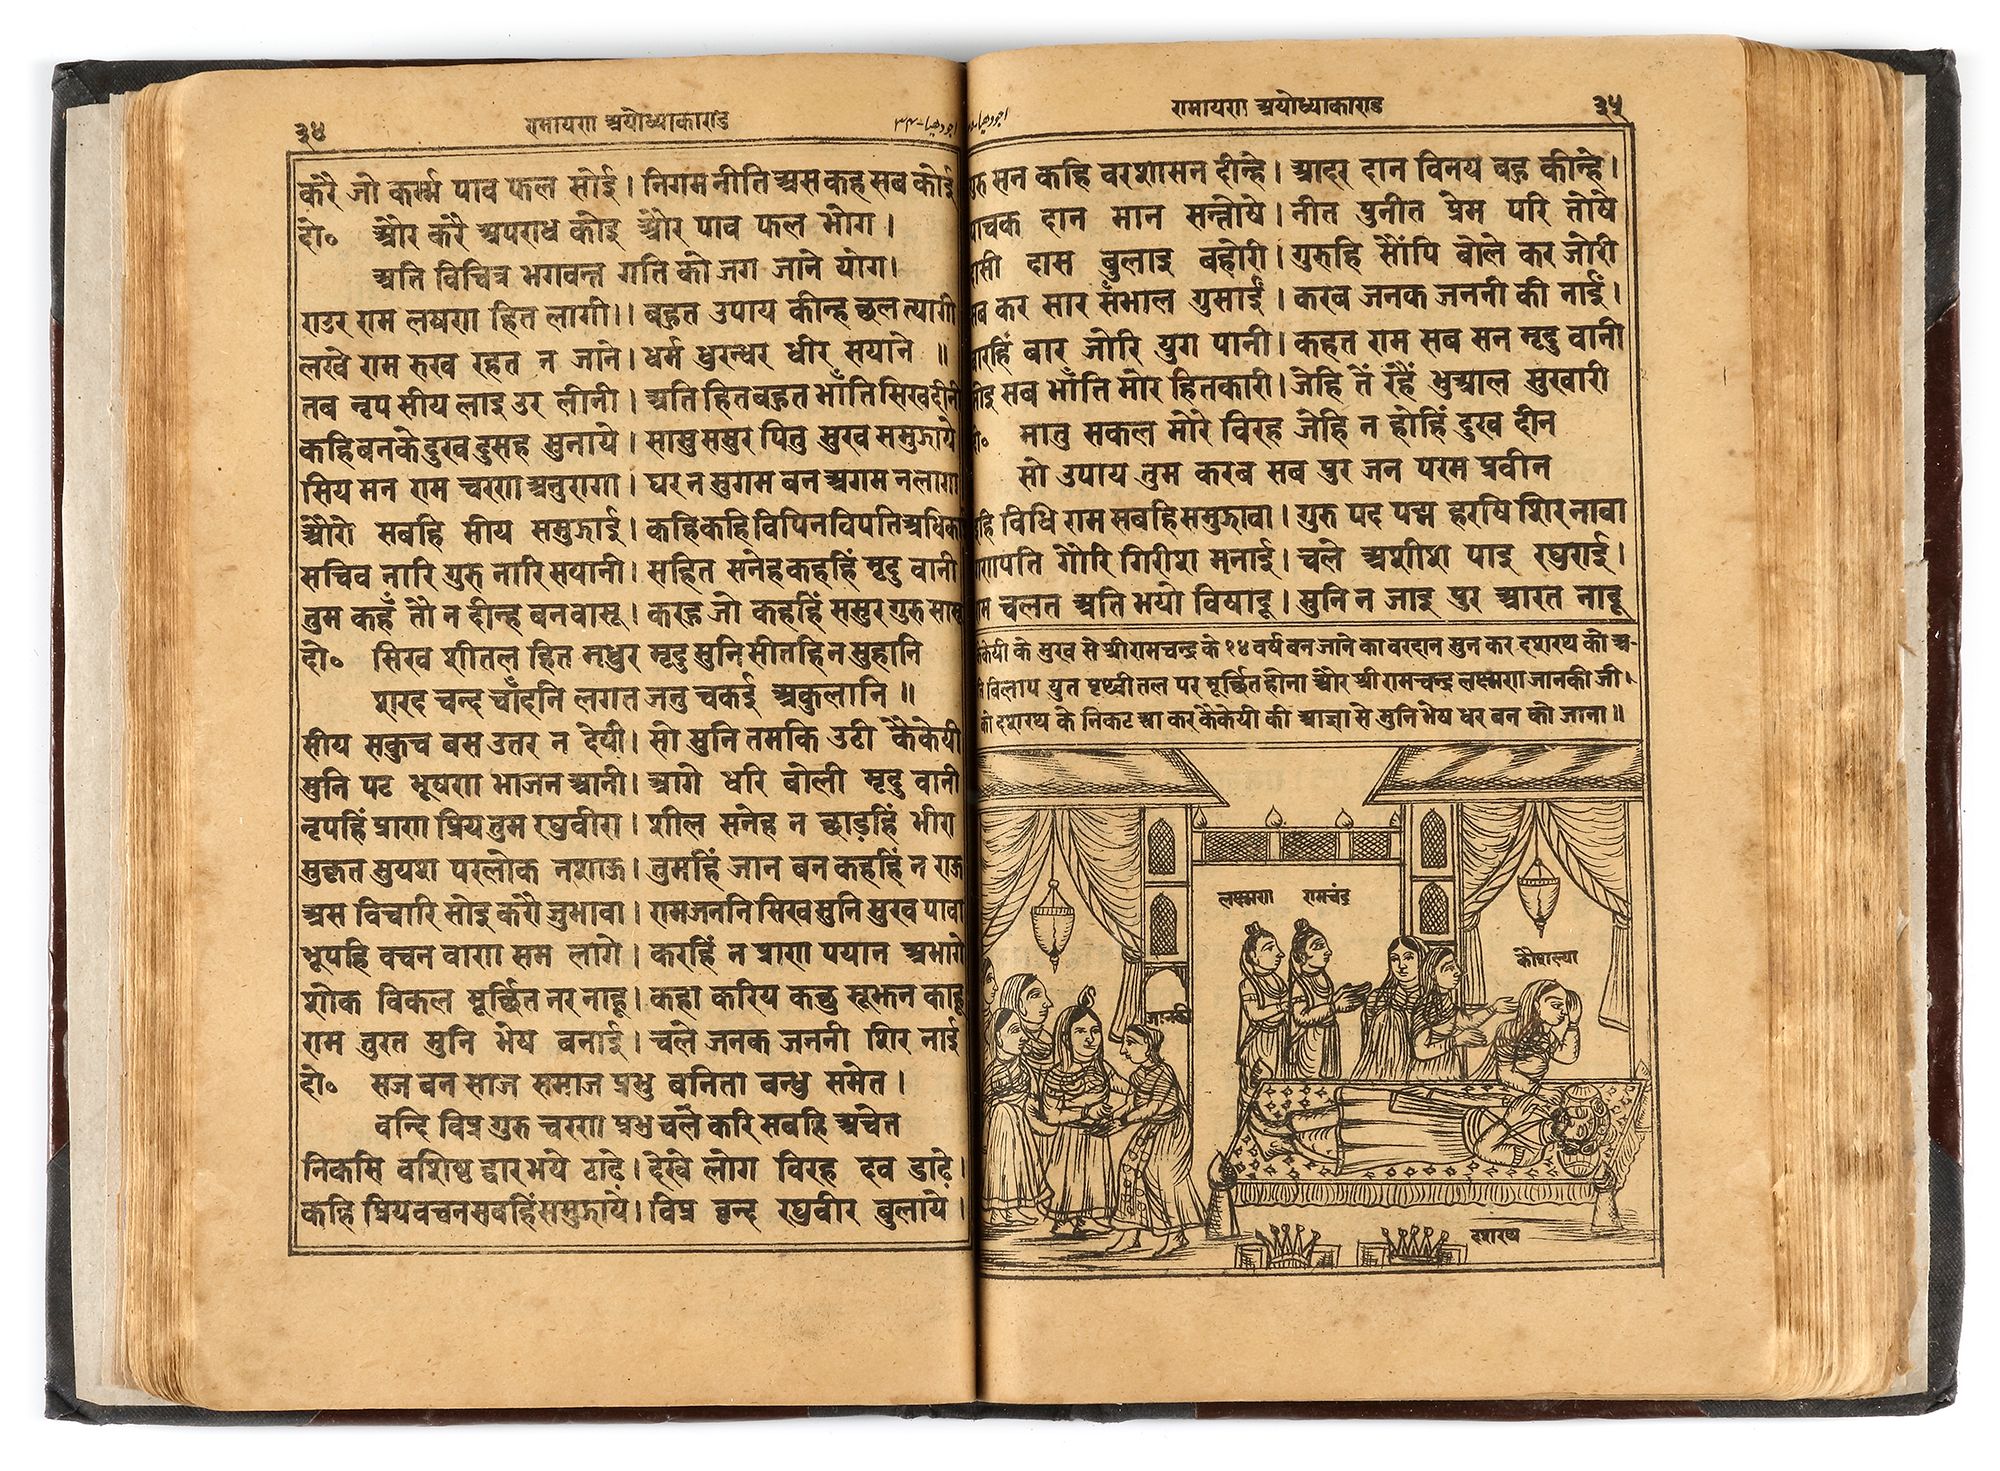 ३४
रामायण अयोध्याकाण्ड
اجودھیا-٣٤
करै जो कर्म्म पाव फल सोई। निगम नीति अस कह सब कोई
दो० और करै अपराध कोइ और पाव फल भोग।
अति विचित्र भगवन्त गति को जग जाने योग।
राउर राम लषण हित लागी।। बहुत उपाय कीन्ह छल त्यागी
लखे राम रुख रहत न जाने। धर्म धुरन्धर धीर सयाने ॥
तब नृप सीय लाइ उर लीनी। अति हित बहुत भाँति सिख दीनी
कहि बन के दुख दुसह सुनाये। सासु ससुर पितु सुख समुझाये
सिय मन राम चरण अनुरागा। घर न सुगम बन अगम न लागा
औरौ सबहि सीय समुझाई। कहि कहि विपिन विपति अधिका
सचिव नारि गुरु नारि सयानी। सहित सनेह कहहिं मृदु वानी
तुम कहँ तौ न दीन्ह बनवासू। करहु जो कहहिं ससुर गुरु सासू
दो० सिख शीतल हित मधुर मृदु सुनि सीतहि न सुहानि
शरद चन्द चाँदनि लगत जनु चकई अकुलानि ॥
सीय सकुच बस उतर न देयी। सो सुनि तमकि उठी कैकेयी
मुनि पट भूषण भाजन आनी। आगे धरि बोली मृदु वानी
नृपहिं प्राण प्रिय तुम रघुवीरा। शील सनेह न छाड़हिं भीरा
सुकृत सुयश परलोक नशाऊ। तुमहिं जान बन कहहिं न राऊ
अस विचारि सोइ करौ जुभावा। राम जननि सिख सुनि सुख पावा
भूपहि वचन वाण सम लागे। करहिं न प्राण पयान अभागे
शोक विकल मूर्च्छित नर नाहू। कहा करिय कछु सूझ न काहू
राम तुरत मुनि भेष बनाई। चले जनक जननी शिर नाई
दो० सज बन साज समाज प्रभु बनिता बन्धु समेत।
वन्दि विप्र गुरु चरण प्रभु चले करि सबहि अचेत
निकसि वशिष्ठ द्वार भये ठाढ़े। देखे लोग विरह दव डाढ़े।
कहि प्रिय वचन सबहिं समुझाये। विप्र वृन्द रघुवीर बुलाये।
रामायण अयोध्याकाण्ड
३५
सन कहि वरशासन दीन्हे। आदर दान विनय बहु कीन्हे।
दान मान सन्तोषे। नीत पुनीत प्रेम परि तोषे
दास बुलाइ बहोरी। गुरुहि सौंपि बोले कर जोरी
कर सार सँभाल गुसाईं। करब जनक जननी की नाईं।
बार जोरि युग पानी। कहत राम सब सन मृदु वानी
सब भाँति मोर हितकारी। जेहि तें रहैं भुआल सुखारी
मातु सकल मोरे विरह जेहि न होहिं दुख दीन
सो उपाय तुम करब सब पुर जन परम प्रवीन
विधि राम सबहि समुझावा। गुरु पद पद्म हरषि शिर नावा
गौरि गिरीश मनाई। चले अशीश पाइ रघुराई।
चलत अति भयो विषादू। सुनि न जाइ पुर आरत नादू
कैकेयी के मुख से श्रीरामचन्द्र के १४ वर्ष बन जाने का वरदान सुन कर दशरथ को अ-
ति विलाप युत पृथ्वी तल पर मूर्च्छित होना और श्री रामचन्द्र लक्ष्मण जानकी जी।
को दशरथ के निकट आ कर कैकेयी की आज्ञा से मुनि भेष धर बन को जाना॥
लक्ष्मण रामचंद्र
कौशल्या
जानकी
दशरथ